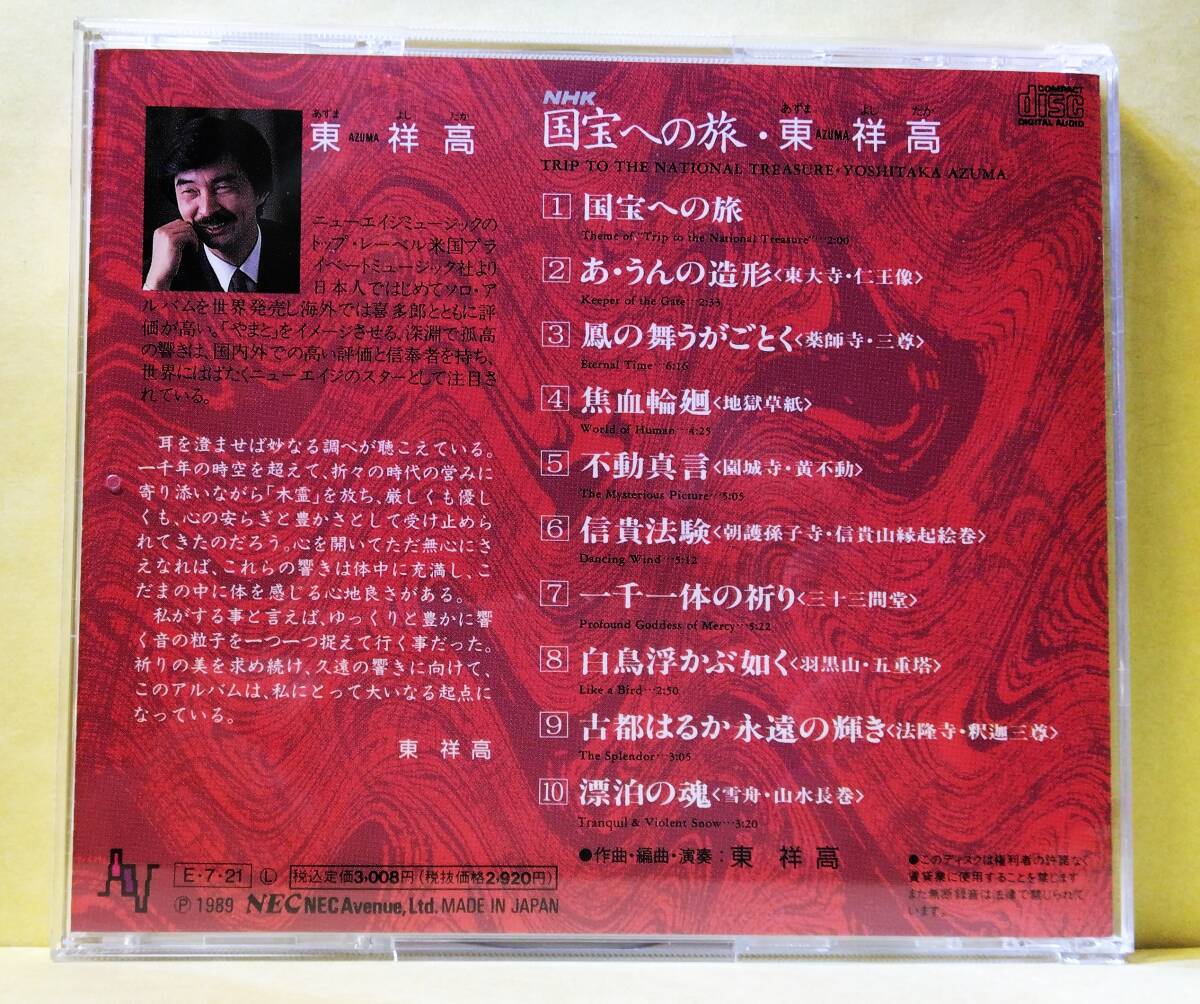 あずま よし たか
東 AZUMA 祥 高
ニューエイジミュージックの
トップ・レーベル米国プラ
イベートミュージック社より
日本人ではじめてソロ・ア
ルバムを世界発売し海外では喜多郎とともに評
価が高い。「やまと」をイメージさせる、深淵で孤高
の響きは、国内外での高い評価と信奉者を持ち、
世界にはばたくニューエイジのスターとして注目さ
れている。
耳を澄ませば妙なる調べが聴こえている。
一千年の時空を超えて、折々の時代の営みに
寄り添いながら「木霊」を放ち、厳しくも優し
くも、心の安らぎと豊かさとして受け止めら
れてきたのだろう。心を開いてただ無心にさ
えなれば、これらの響きは体中に充満し、こ
だまの中に体を感じる心地良さがある。
私がする事と言えば、ゆっくりと豊かに響
く音の粒子を一つ一つ捉えて行く事だった。
祈りの美を求め続け、久遠の響きに向けて、
このアルバムは、私にとって大いなる起点に
なっている。
東 祥高
AV
E・7・21 Ⓛ 税込定価3,008円(税抜価格2,920円)
Ⓟ 1989 NEC NEC Avenue, Ltd. MADE IN JAPAN
COMPACT
disc
DIGITAL AUDIO
NHK
あずま よし たか
国宝への旅・東 AZUMA 祥 高
TRIP TO THE NATIONAL TREASURE・YOSHITAKA AZUMA
1 国宝への旅
Theme of "Trip to the National Treasure"…2:00
2 あ・うんの造形〈東大寺・仁王像〉
Keeper of the Gate…2:33
3 鳳の舞うがごとく〈薬師寺・三尊〉
Eternal Time…6:16
4 焦血輪廻〈地獄草紙〉
World of Human…4:25
5 不動真言〈園城寺・黄不動〉
The Mysterious Picture…5:05
6 信貴法験〈朝護孫子寺・信貴山縁起絵巻〉
Dancing Wind…5:12
7 一千一体の祈り〈三十三間堂〉
Profound Goddess of Mercy…5:22
8 白鳥浮かぶ如く〈羽黒山・五重塔〉
Like a Bird…2:50
9 古都はるか永遠の輝き〈法隆寺・釈迦三尊〉
The Splendor…3:05
10 漂泊の魂〈雪舟・山水長巻〉
Tranquil & Violent Snow…3:20
●作曲・編曲・演奏:東 祥 高
●このディスクは権利者の許諾なく
賃貸業に使用することを禁じます
また無断録音は法律で禁じられて
います。